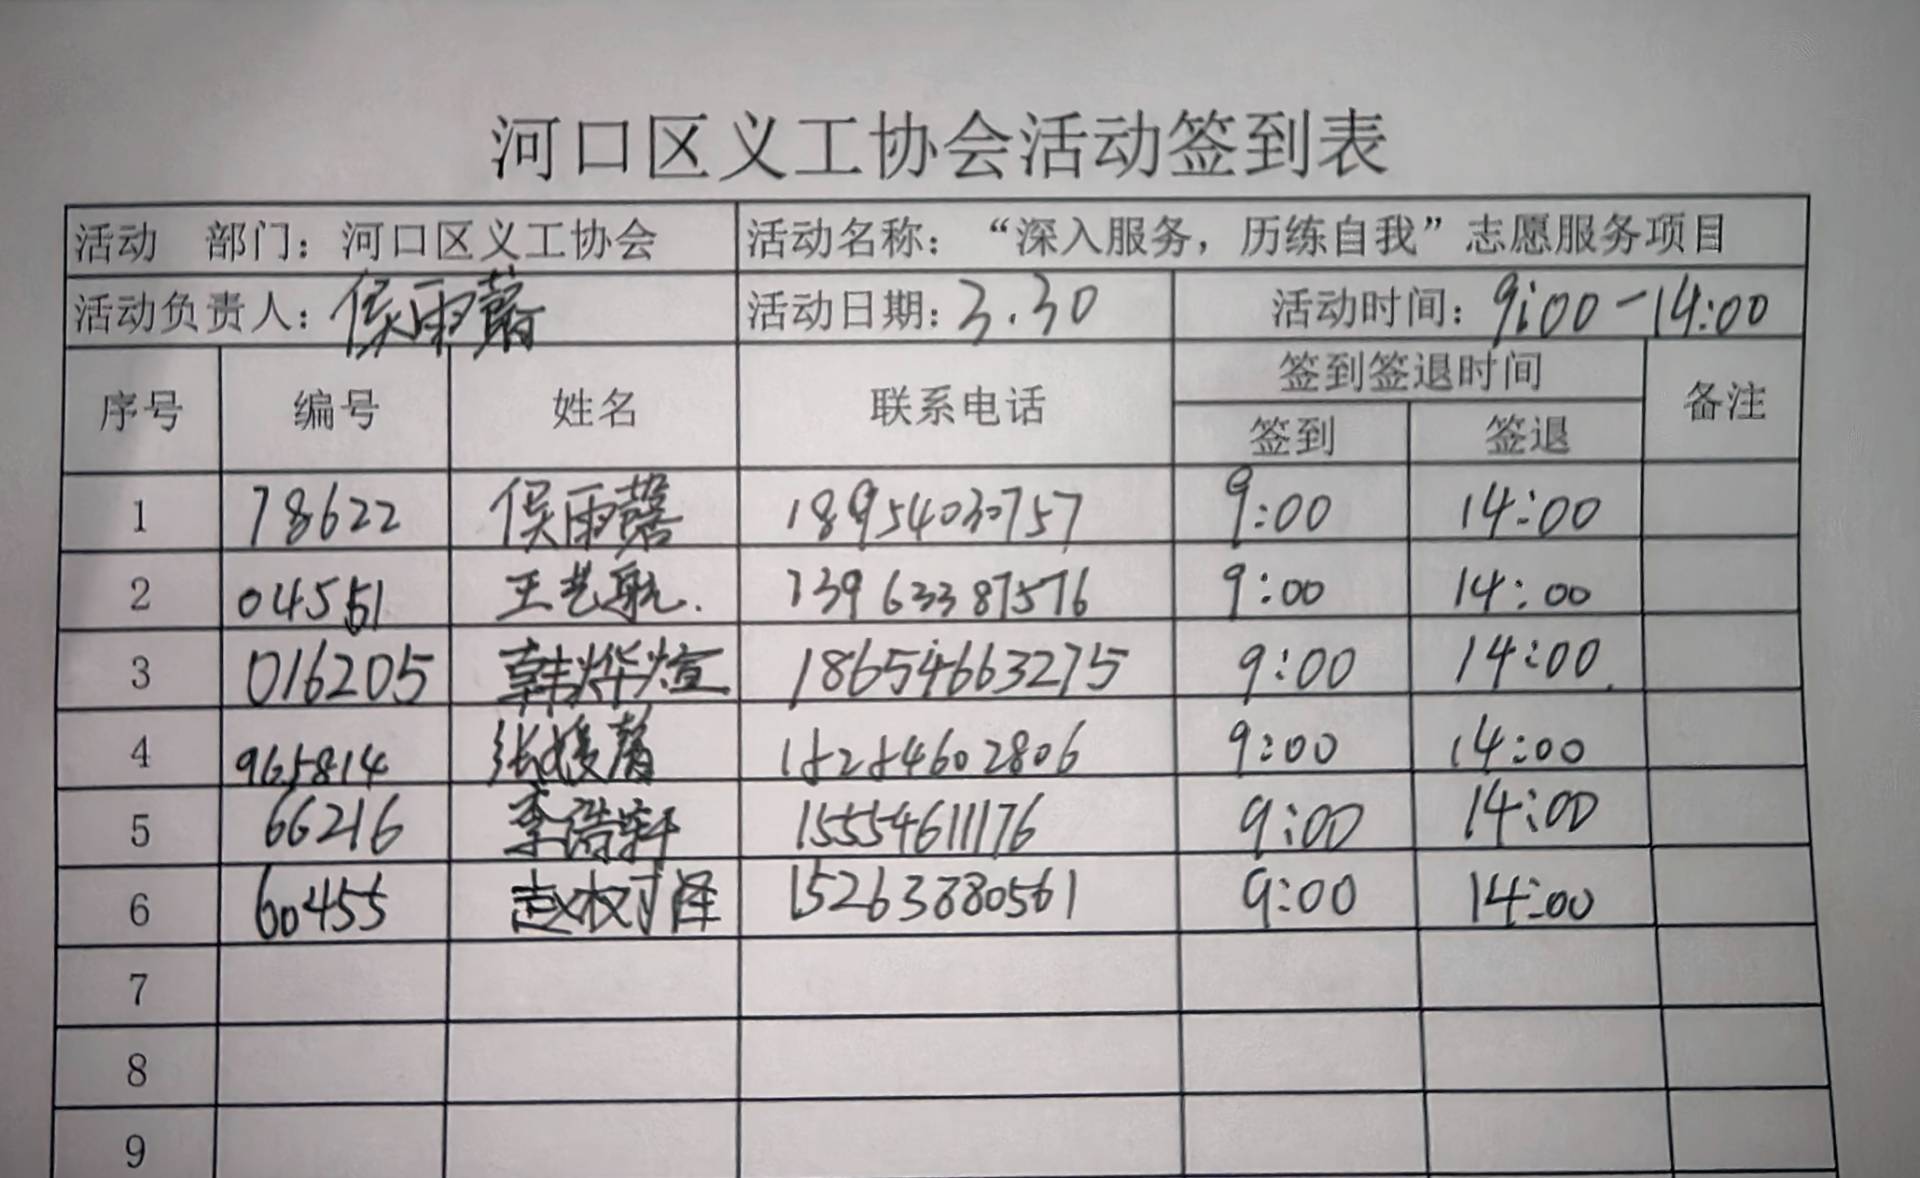 河口区义工协会活动签到表
活动 部门：河口区义工协会 活动名称：“深入服务，历练自我”志愿服务项目
活动负责人：侯雨馨 活动日期：3.30 活动时间：9:00-14:00
序号 编号 姓名 联系电话 签到签退时间 备注
签到 签退
1 78622 侯雨馨 18954030757 9:00 14:00
2 04551 王艺航. 13963387576 9:00 14:00
3 016205 韩烨煊 18654663275 9:00 14:00
4 965814 张媛馨 18284602806 9:00 14:00
5 66216 李浩轩 15554611176 9:00 14:00
6 60455 赵树泽 15263880561 9:00 14:00
7
8
9